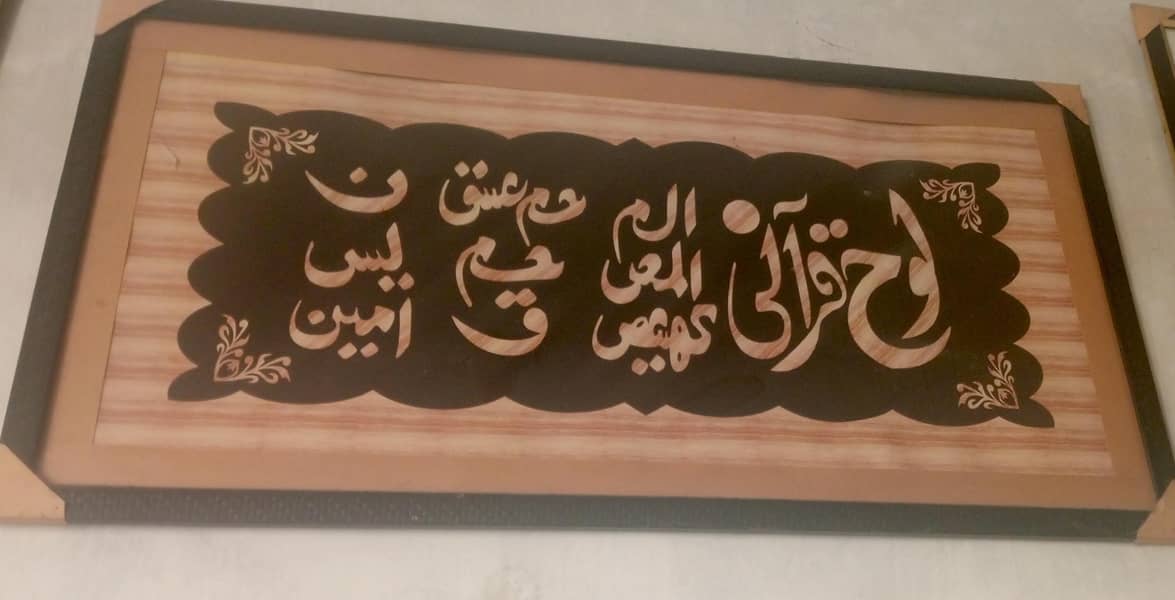 لوح قرآنی
الم
المص
كهيعص
حم عسق
حم
ق
ن
يس
آمین